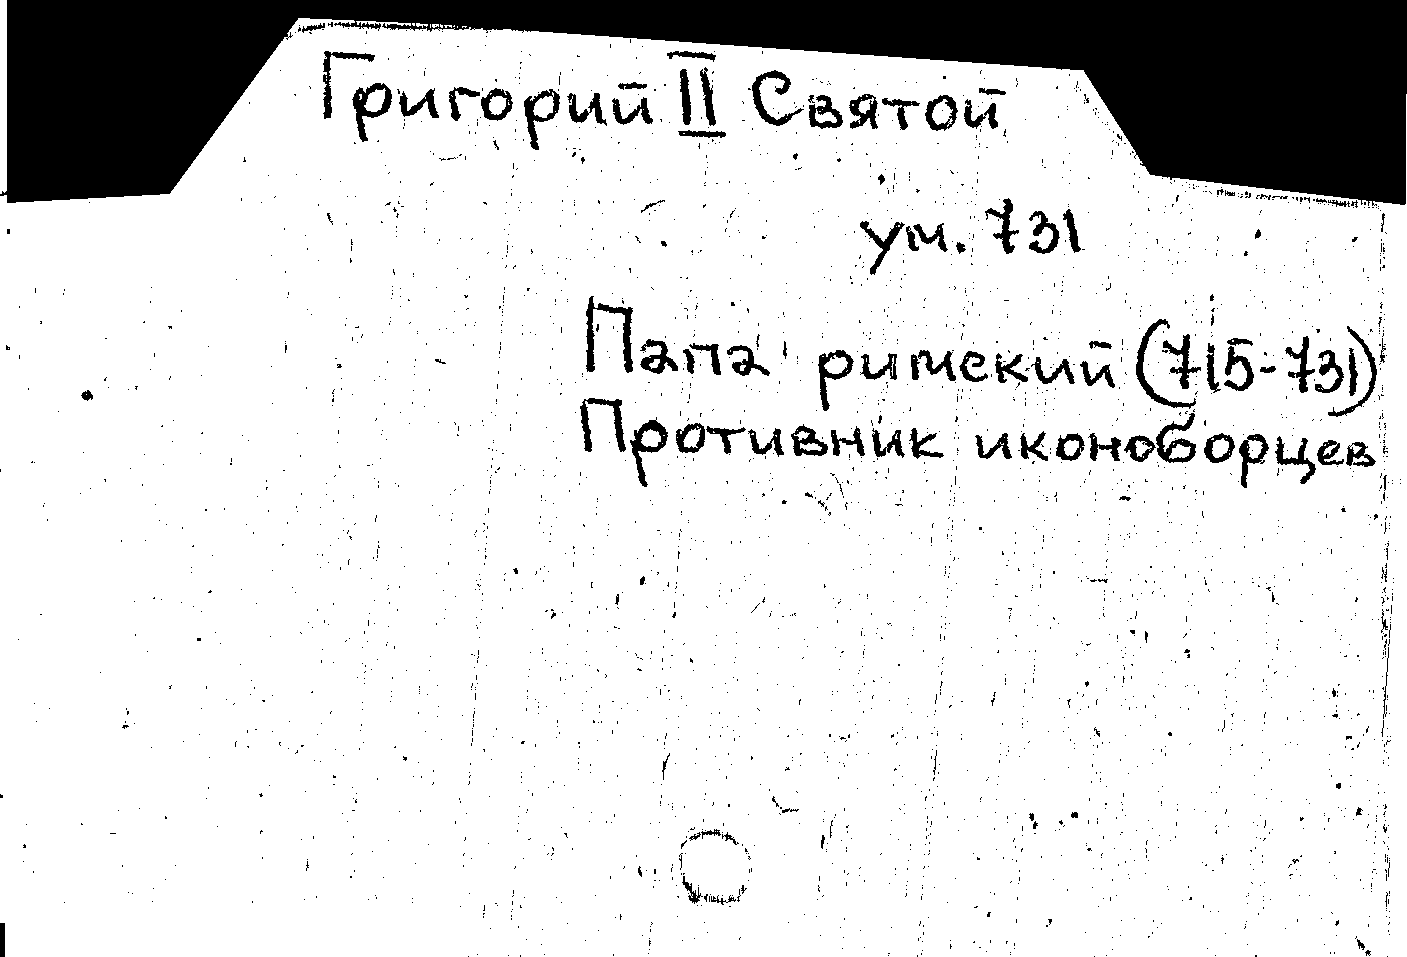 Григорий II Святой
ум. 731
Папа римский (715-731)
Противник иконоборцев